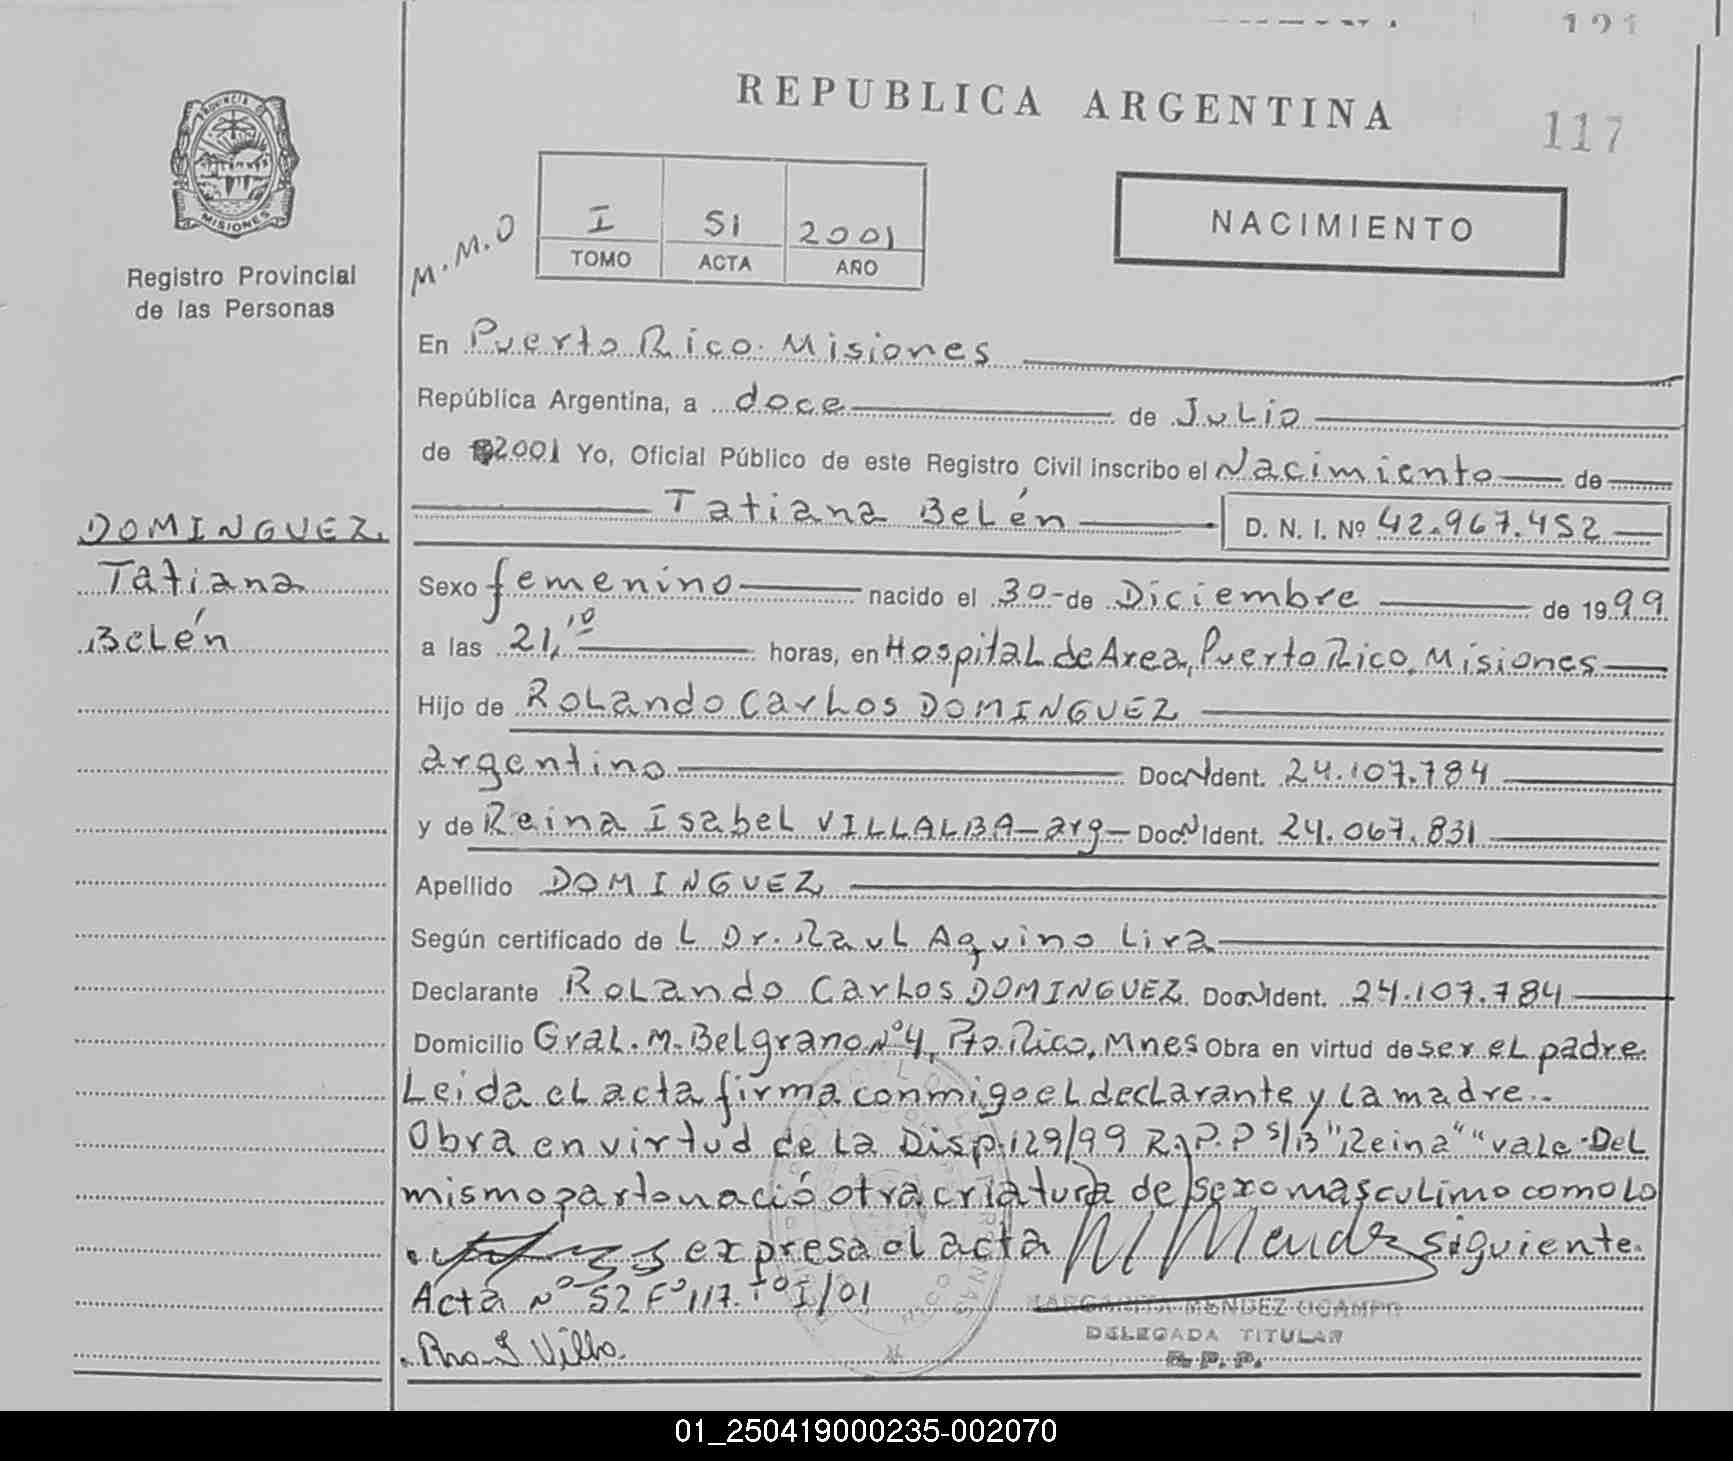 REPUBLICA ARGENTINA
117
PROVINCIA D
MISIONES
Registro Provincial
de las Personas
M.M.O
I 51 2001
TOMO ACTA AÑO
NACIMIENTO
En Puerto Rico. Misiones
República Argentina, a doce de Julio
de 2001 Yo, Oficial Público de este Registro Civil inscribo el Nacimiento de
Tatiana Belén D. N. I. Nº 42.967.452
DOMINGUEZ.
Tatiana
Belén
Sexo femenino nacido el 30-de Diciembre de 1999
a las 21,10 horas, en Hospital de Area, Puerto Rico, Misiones
Hijo de Rolando Carlos DOMINGUEZ
argentino Doc N Ident. 24.107.784
y de Reina Isabel VILLALBA-arg- Doc. N Ident. 24.067.831
Apellido DOMINGUEZ
Según certificado de L Dr. Raul Aquino Lira
Declarante Rolando Carlos DOMINGUEZ. Doc N Ident. 24.107.784
Domicilio Gral. M. Belgrano Nº 4, Pto Rico, Mnes Obra en virtud de ser el padre.
Leida el acta firma conmigo el declarante y la madre..
Obra en virtud de la Disp. 129/99 R.P.P S/B "Reina" "vale. Del
mismo parto nació otra criatura de sexo masculino como lo
expresa el acta M Mendez siguiente.
Acta Nº 52 Fº 117. Tº I/01
MARGARITA MENDEZ OCAMPO
DELEGADA TITULAR
R. P. P.
01_250419000235-002070